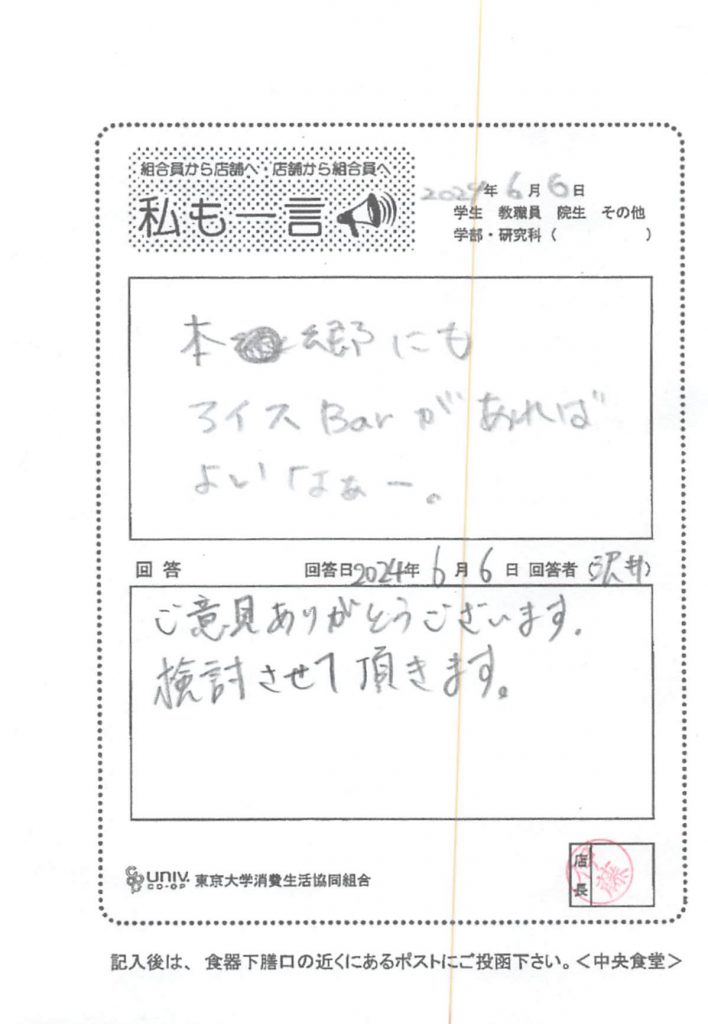 組合員から店舗へ・店舗から組合員へ
私も一言
2024年 6月 6日
学生 教職員 院生 その他
学部・研究科 ( )
本郷にも
アイスBarがあれば
よいなぁー。
回答 回答日2024年 6月 6日 回答者(沢井)
ご意見ありがとうございます.
検討させて頂きます。
店長
UNIV. CO-OP 東京大学消費生活協同組合
記入後は、食器下膳口の近くにあるポストにご投函下さい。<中央食堂>